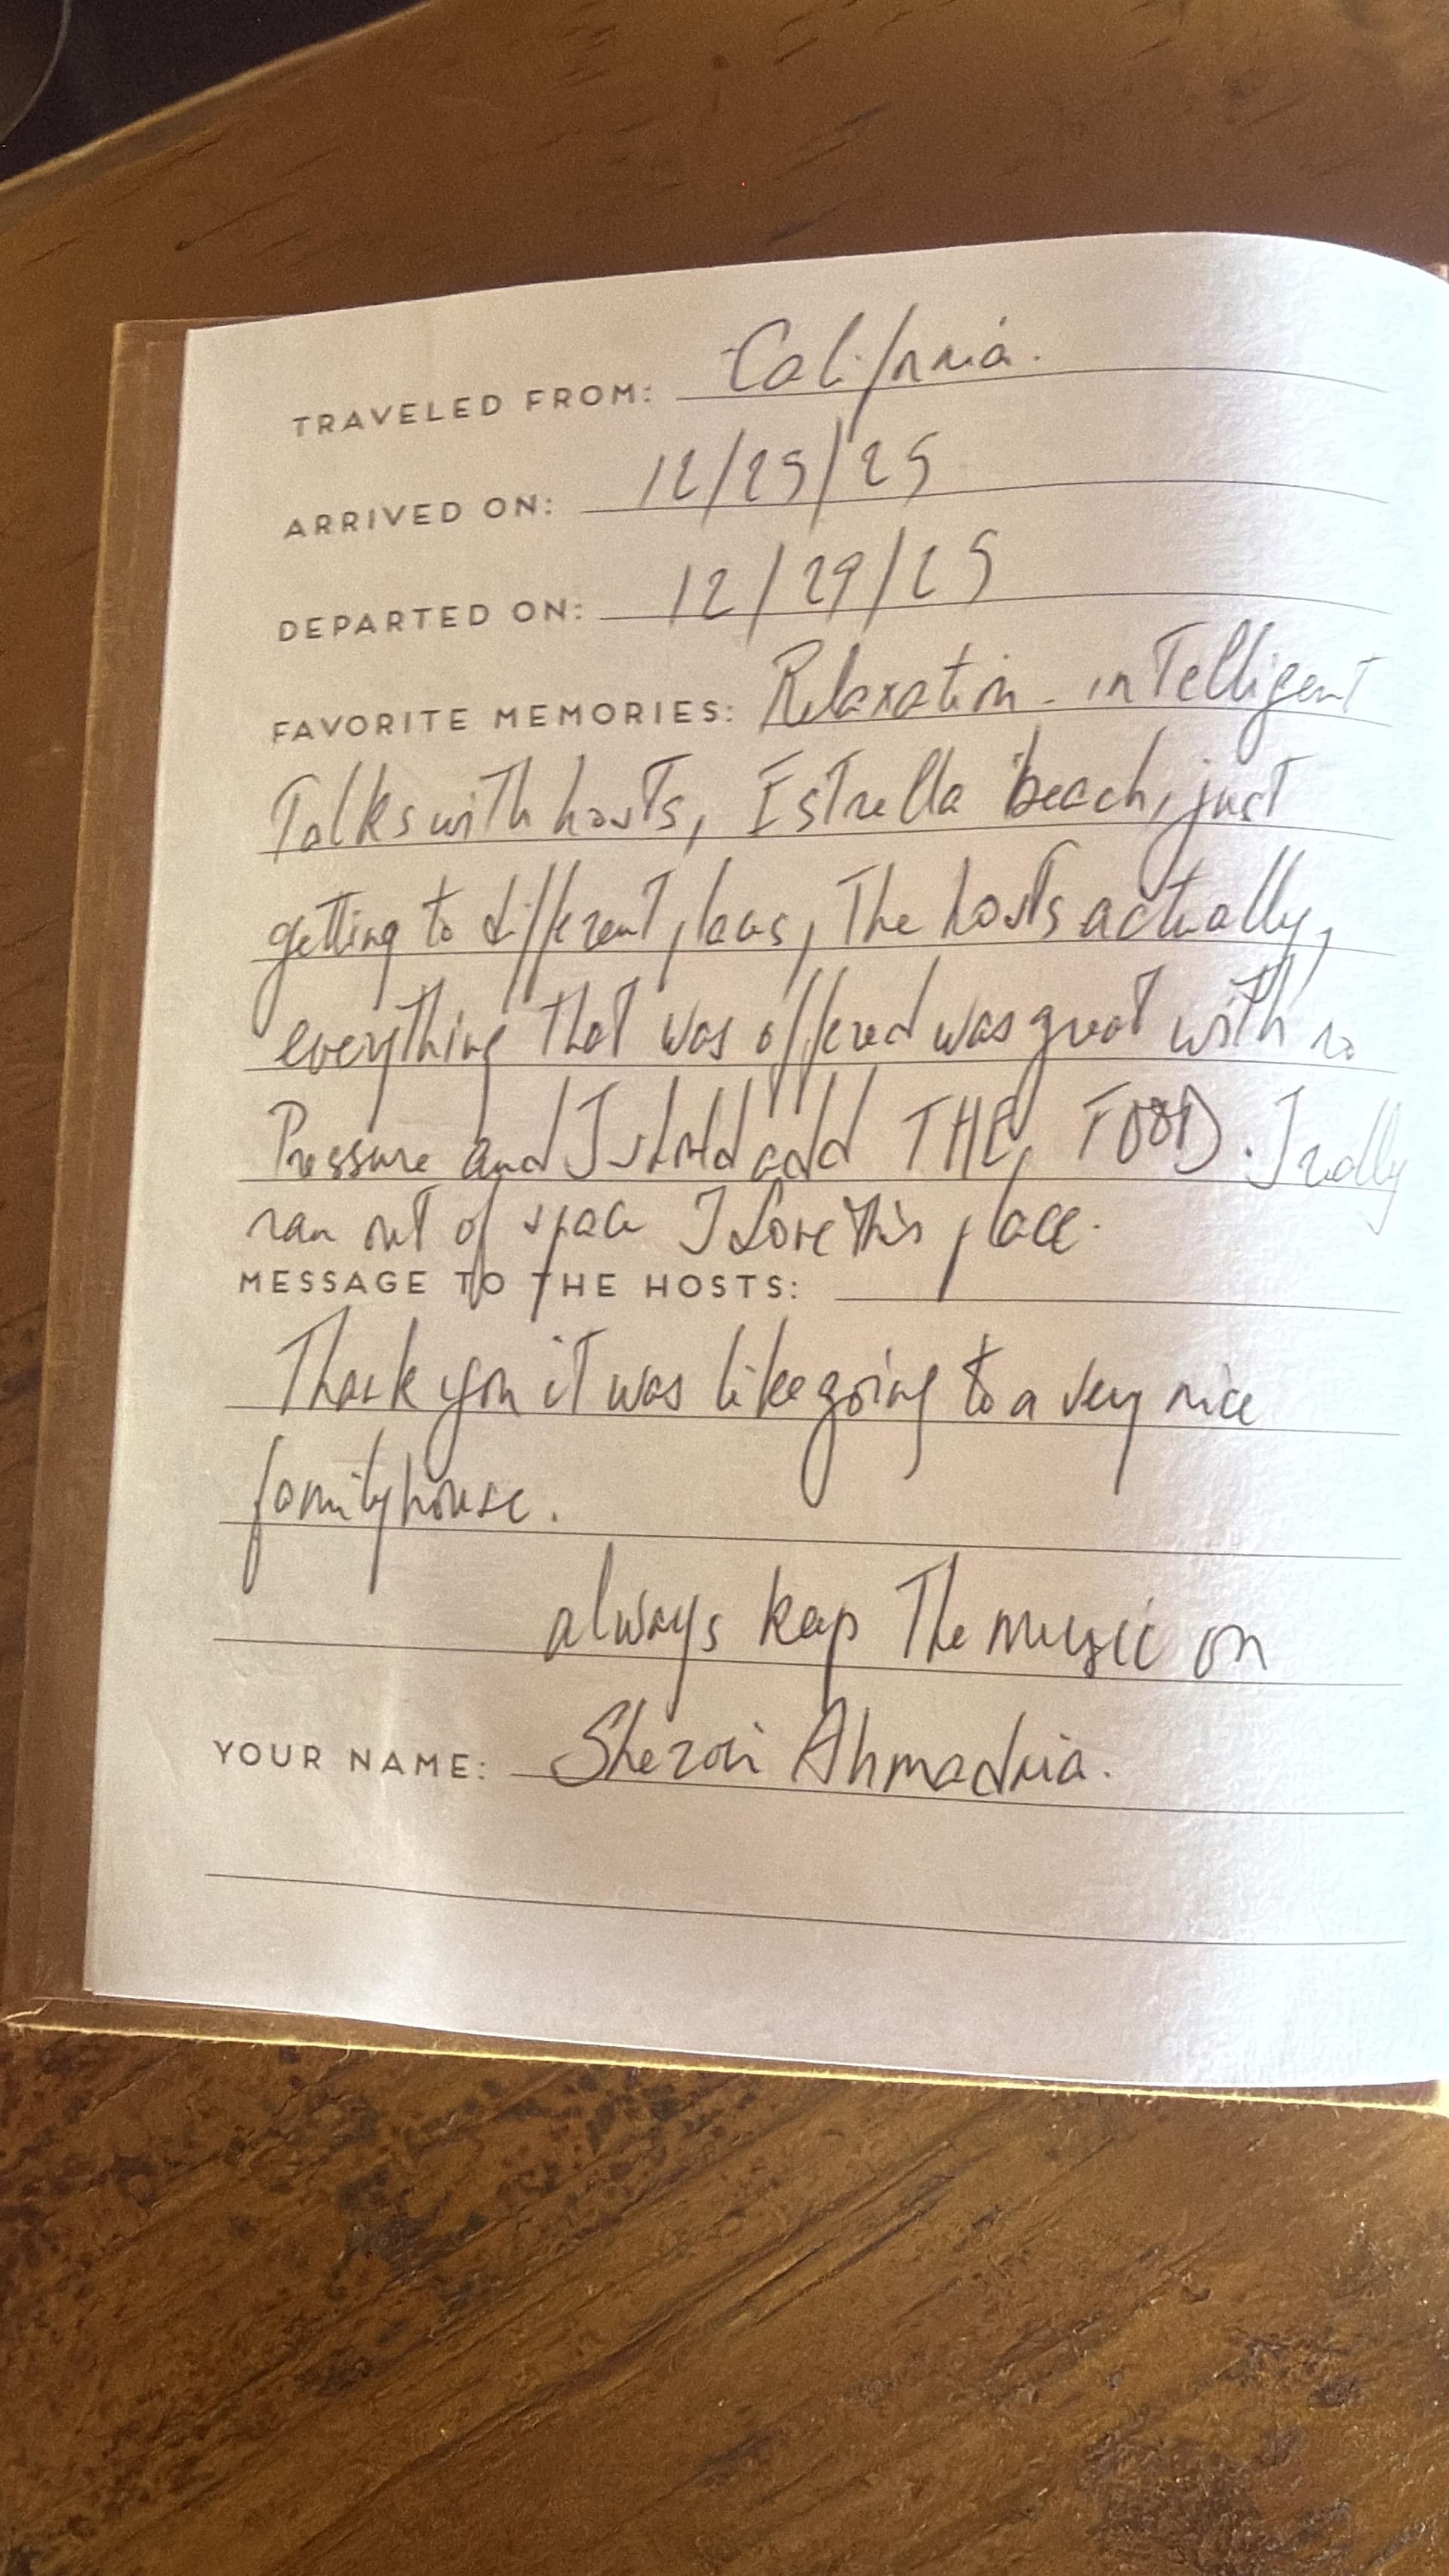 TRAVELED FROM: California.
ARRIVED ON: 12/25/25
DEPARTED ON: 12/29/25
FAVORITE MEMORIES: Relaxation - inTelligenT
Talks with hosTs, Estrella beach, just
getting to differenT places, The hosTs actually,
everything thaT was offered was greaT with no
Pressure and I should add THE FOOD. I really
ran ouT of space I Love This place.
MESSAGE TO THE HOSTS:
Thank you iT was like going to a very nice
family house.
always keep The music on
YOUR NAME: Ahmadnia.